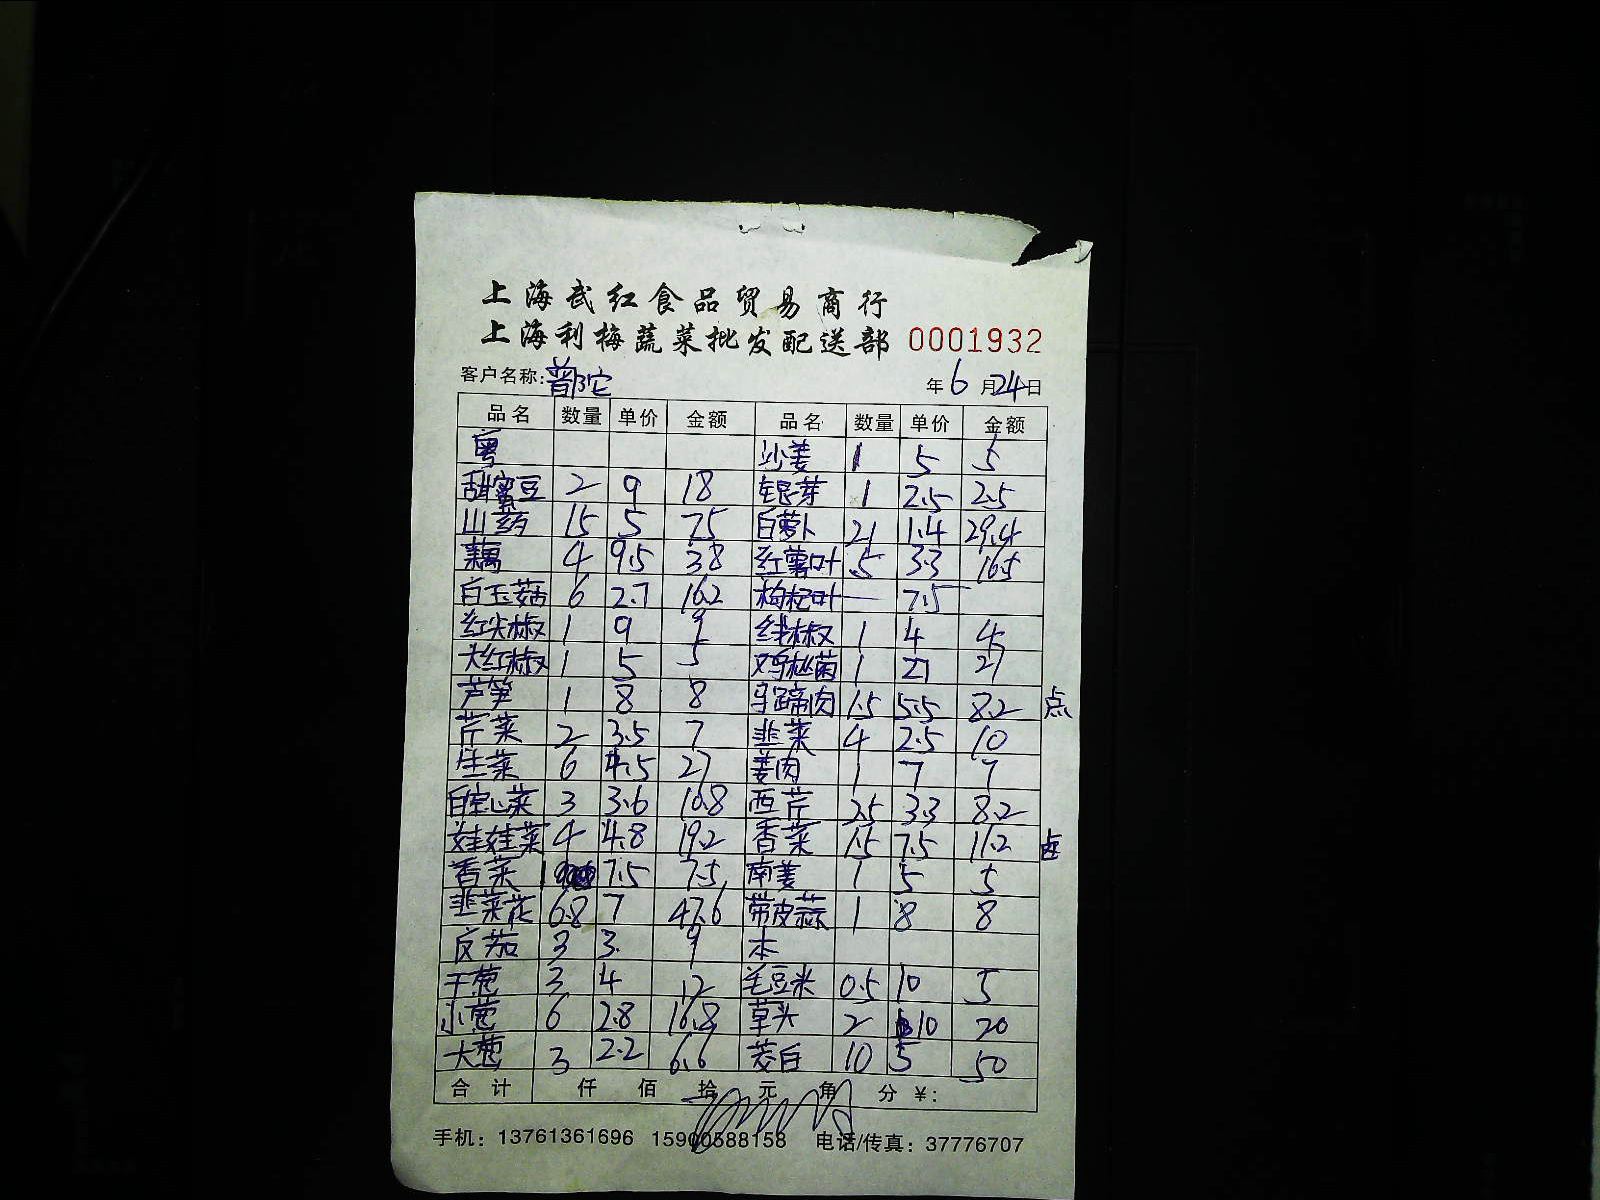 上海武红食品贸易商行
上海利梅蔬菜批发配送部 0001932
客户名称:普陀 年6月24日
品名 数量 单价 金额 品名 数量 单价 金额
粤 沙姜 1 5 5
甜蜜豆 2 9 18 银芽 1 2.5 2.5
山药 15 5 75 白萝卜 21 1.4 29.4
藕 4 9.5 38 红薯叶 5 3.3 16.5
白玉菇 6 2.7 16.2 枸杞叶 — 7.5
红尖椒 1 9 9 线椒 1 4 4
大红椒 1 5 5 鸡枞菌 1 21 21
芦笋 1 8 8 马蹄肉 1.5 5.5 8.2 点
芹菜 2 3.5 7 韭菜 4 2.5 10
生菜 6 4.5 27 姜肉 1 7 7
白空心菜 3 3.6 10.8 西芹 2.5 3.3 8.2
娃娃菜 4 4.8 19.2 香菜 1.5 7.5 11.2 卤
香菜 1 7.5 7.5 南姜 1 5 5
韭菜花 6.8 7 47.6 带皮蒜 1 8 8
茄 3 3. 9 本
干葱 3 4 12 毛豆米 0.5 10 5
小葱 6 2.8 16.8 草头 2 10 20
大葱 3 2.2 6.6 茭白 10 5 50
合计 仟 佰 拾 元 角 分 ¥:
手机: 13761361696 15900588158 电话/传真: 37776707